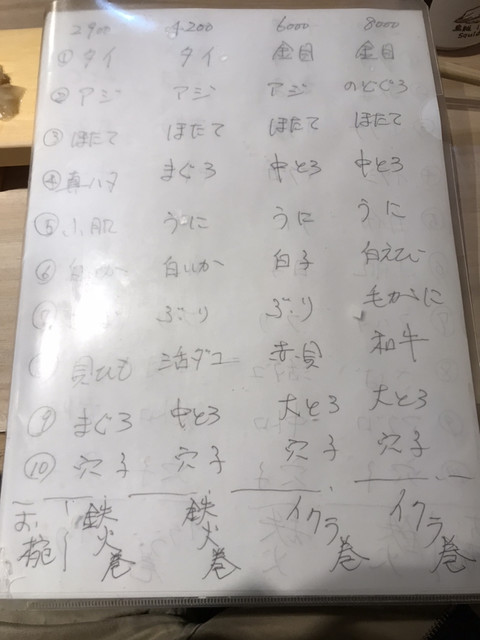 2900 4200 6000 8000
① タイ タイ 金目 金目
② アジ アジ アジ のどぐろ
③ ほたて ほたて ほたて ほたて
④ 真ハタ まぐろ 中とろ 中とろ
⑤ 小肌 うに うに うに
⑥ 白いか 白いか 白子 白えび
ぶり ぶり 毛がに
貝ひも 活ダコ 赤貝 和牛
⑨ まぐろ 中とろ 大とろ 大とろ
⑩ 穴子 穴子 穴子 穴子
お椀 鉄火巻 鉄火巻 イクラ巻 イクラ巻